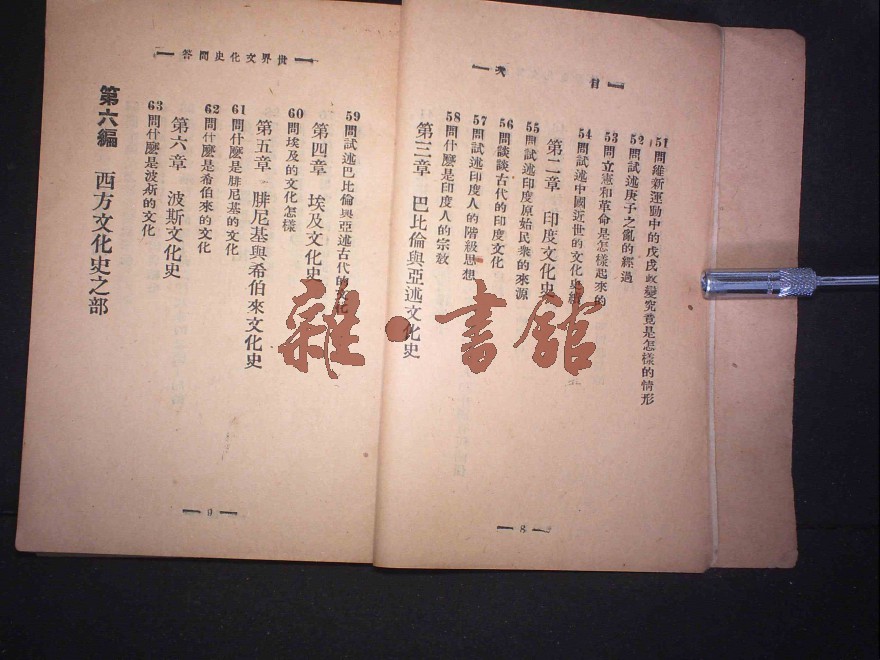 目次
51 問維新運動中的戊戌政變究竟是怎樣的情形
52 問試述庚子之亂的經過
53 問立憲和革命是怎樣起來的
54 問試述中國近世的文化
第二章 印度文化史
55 問試述印度原始民衆的來源
56 問談談古代的印度文化
57 問試述印度人的階級思想
58 問什麼是印度人的宗敎
第三章 巴比倫與亞述文化史
8
世界文化史問答
59 問試述巴比倫與亞述古代的文化
第四章 埃及文化史
60 問埃及的文化怎樣
第五章 腓尼基與希伯來文化史
61 問什麼是腓尼基的文化
62 問什麼是希伯來的文化
第六章 波斯文化史
63 問什麼是波斯的文化
第六編 西方文化史之部
9
雜·書館